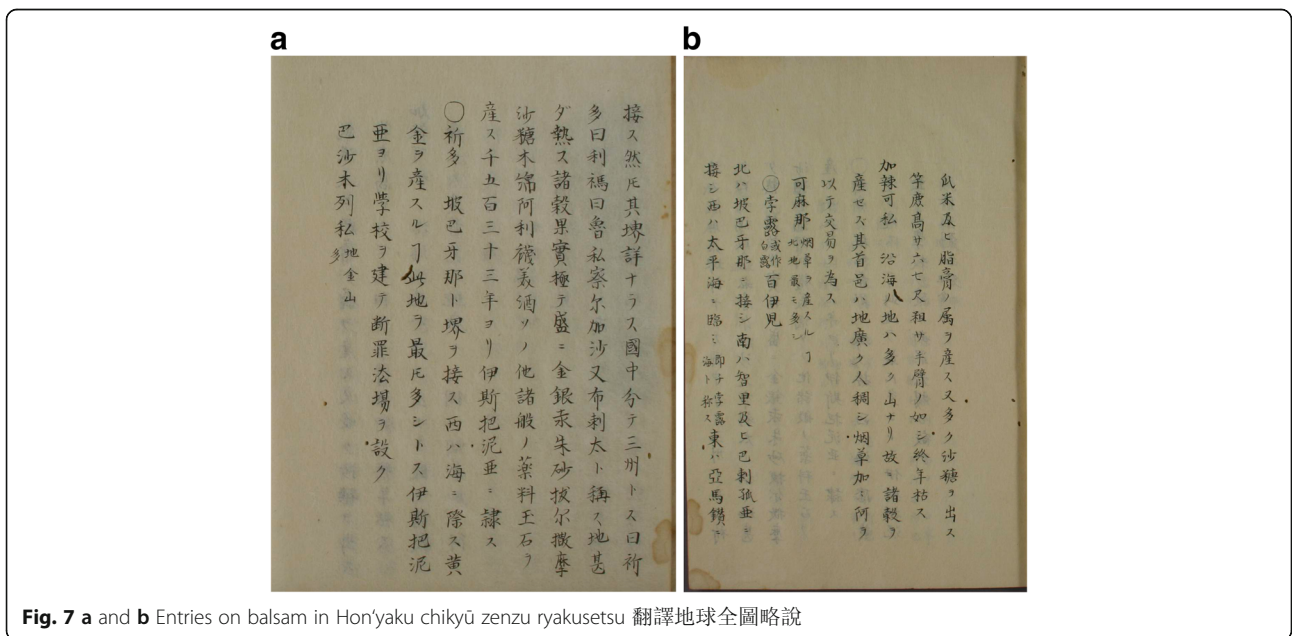 a
接ス然𪜈其堺詳ナラス國中分テ三州トス曰祈
多曰利禡曰魯私察尓加沙又布剌太ト稱ス地甚
ダ熱ス諸穀果實極テ盛ニ金銀汞朱砂拔尓撒摩
沙糖木綿阿利襪美酒ソノ他諸般ノ藥料玉石ヲ
産ス千五百三十三年ヨリ伊斯把泥亜ニ隷ス
○祈多 坡巴牙那ト堺ヲ接ス西ハ海ニ際ス黄
金ヲ産スルヿ此地ヲ最𪜈多シトス伊斯把泥
亜ヨリ學校ヲ建テ断罪法場ヲ設ク
巴沙木列私 地金山多
b
瓜米及ヒ脂膏ノ属ヲ産ス又多ク沙糖ヲ出ス
竿庶高サ六七尺粗サ手臂ノ如シ終年枯ス
加辣可私 沿海ノ地ハ多ク山ナリ故ニ諸穀ヲ
産セス其首邑ハ地廣ク人稠シ烟草加々阿ヲ
以テ交易ヲ為ス
可麻那 烟草ヲ産スルヿ北地最モ多シ
○孛露 或作白露 百伊児
北ハ坡巴牙那ニ接シ南ハ智里及ヒ巴剌孤亜ニ
接シ西ハ太平海ニ臨ミ 即チ孛露海ト称ス 東ハ亞馬鑽ニ
Fig. 7 a and b Entries on balsam in Hon'yaku chikyū zenzu ryakusetsu 翻譯地球全圖略說